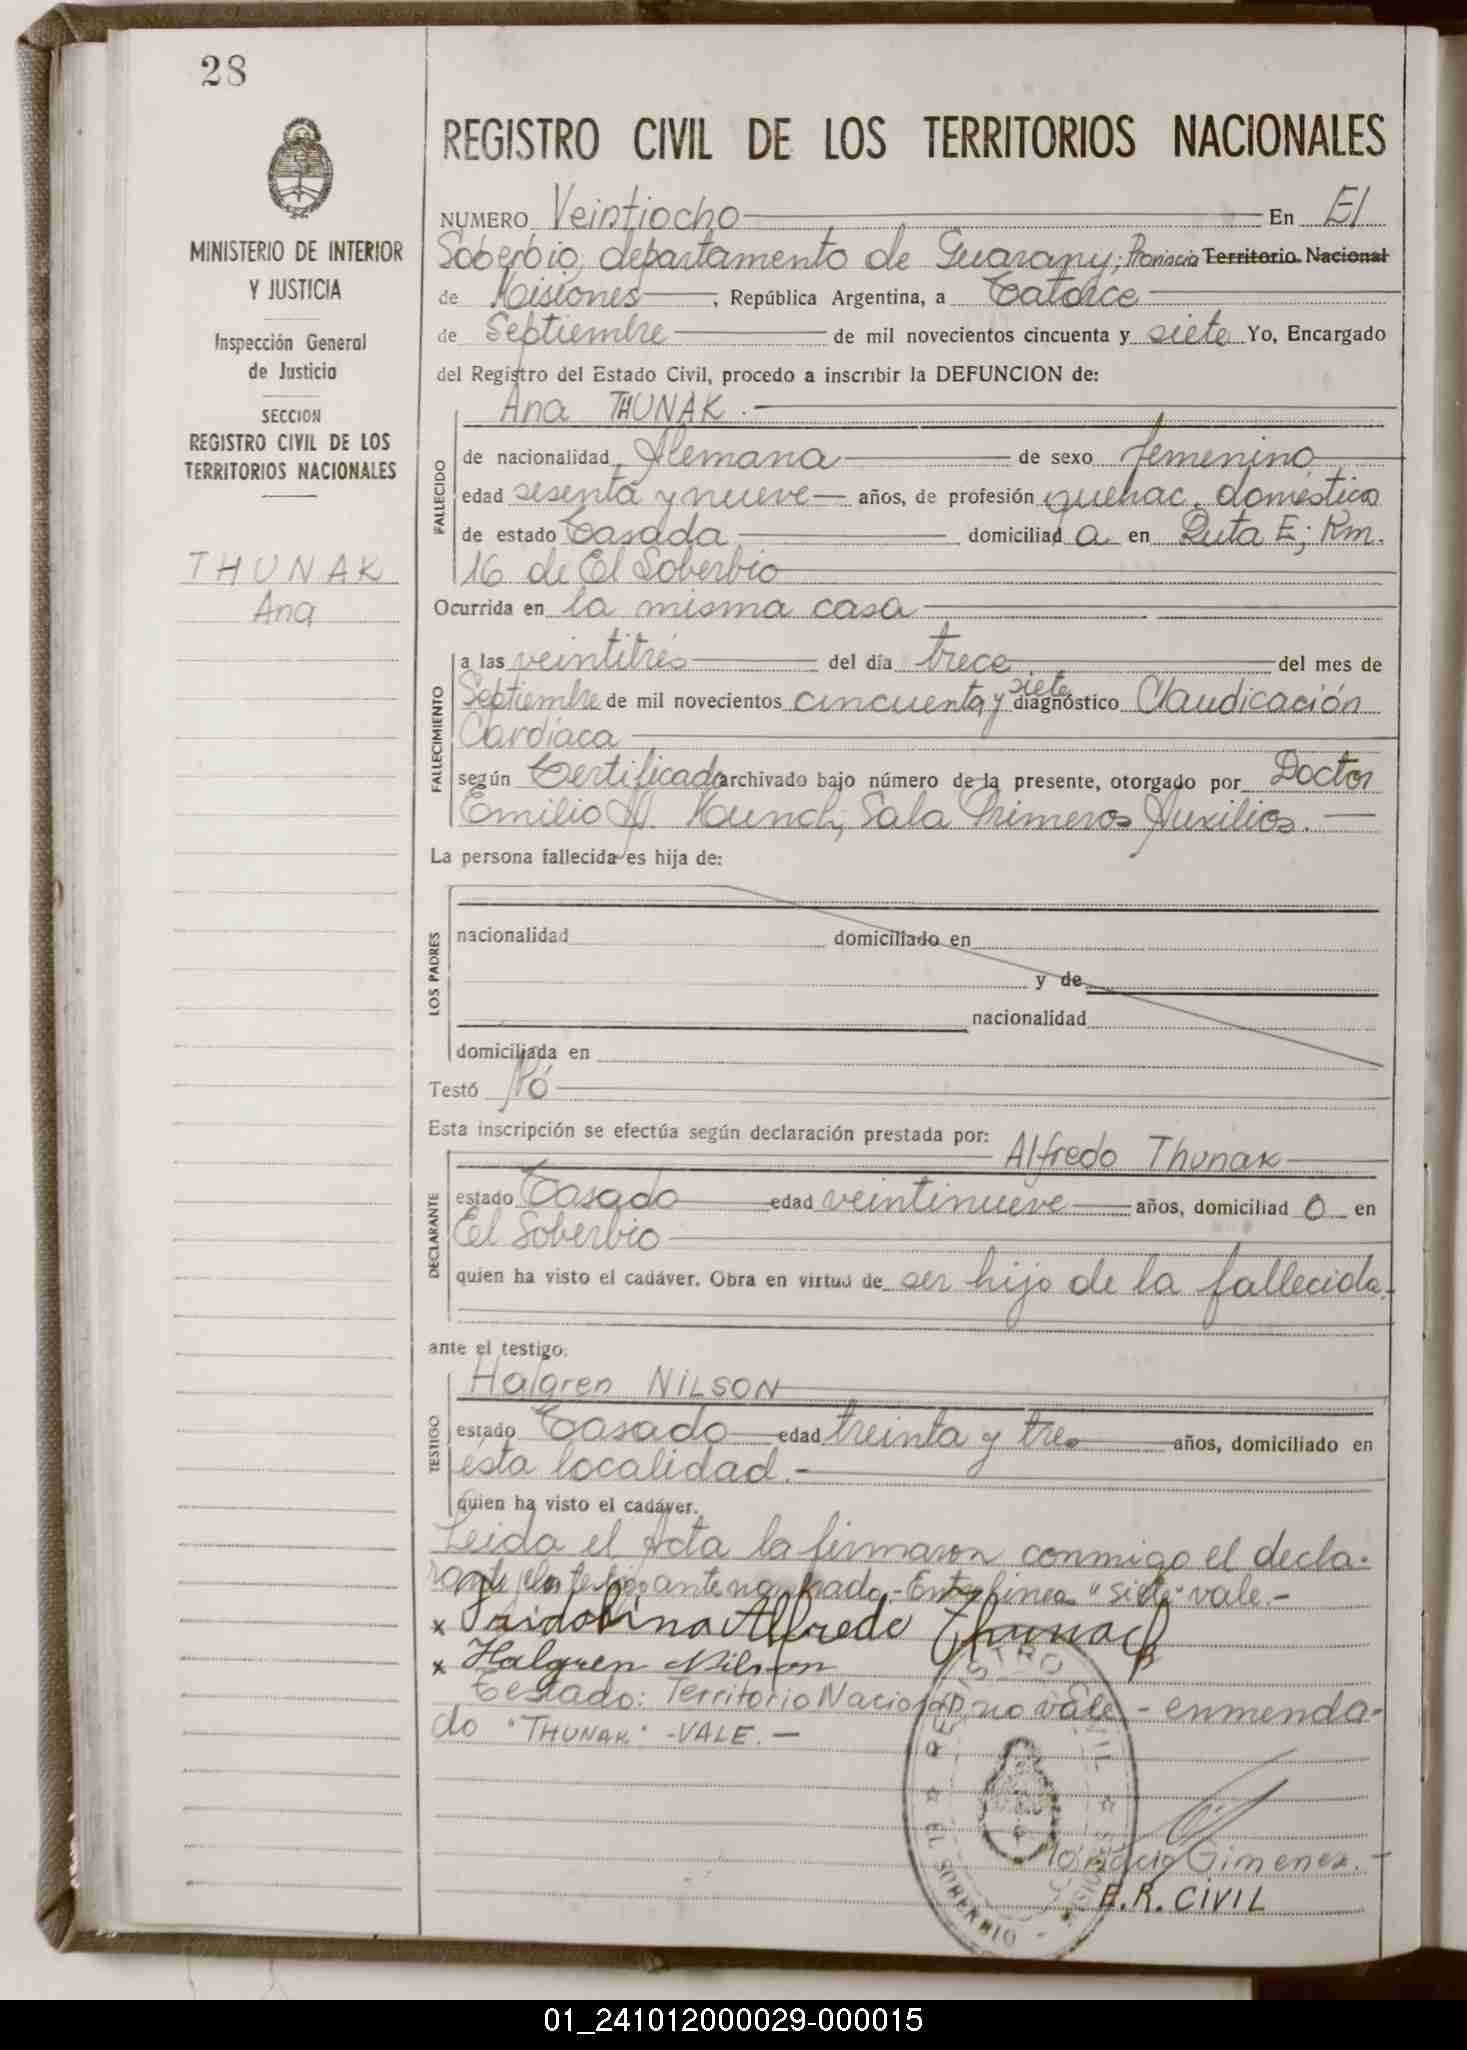 28
MINISTERIO DE INTERIOR
Y JUSTICIA
Inspección General
de Justicia
SECCION
REGISTRO CIVIL DE LOS
TERRITORIOS NACIONALES
THUNAK
Ana
REGISTRO CIVIL DE LOS TERRITORIOS NACIONALES
NUMERO Veintiocho En El
Soberbio, departamento de Guarany; Provincia Territorio Nacional
de Misiones, República Argentina, a Catorce
de Septiembre de mil novecientos cincuenta y siete Yo, Encargado
del Registro del Estado Civil, procedo a inscribir la DEFUNCION de:
Ana THUNAK.
FALLECIDO
de nacionalidad Alemana de sexo femenino
edad sesenta y nueve años, de profesión quehac. doméstico
de estado Casada domiciliad a en Ruta E; Km.
16 de El Soberbio
Ocurrida en la misma casa
FALLECIMIENTO
a las veintitrés del día trece del mes de
siete
Septiembre de mil novecientos cincuenta y diagnóstico Claudicación
Cardíaca
según Certificado archivado bajo número de la presente, otorgado por Doctor
Emilio H. Kunch, Sala Primeros Auxilios.
La persona fallecida es hija de:
LOS PADRES
nacionalidad domiciliado en
y de
nacionalidad
domiciliada en
Testó Nó
Esta inscripción se efectúa según declaración prestada por:
Alfredo Thunak
DECLARANTE
estado Casado edad veintinueve años, domiciliad o en
El Soberbio
quien ha visto el cadáver. Obra en virtud de ser hijo de la fallecida.
ante el testigo:
Halgren NILSON
TESTIGO
estado Casado edad treinta y tres años, domiciliado en
ésta localidad.-
quien ha visto el cadáver.
Leida el Acta la firmaron conmigo el decla-
rante y el testigo antenombrado.- Entre linea "siete" vale.-
x Alfredo Thunack
x Halgren Nilson
Testado: Territorio Nacional no vale - enmenda-
do "THUNAK" -VALE.-
REGISTRO CIVIL
EL SOBERBIO - MISIONES
Ignacio Gimenez.-
E.R. CIVIL
01_241012000029-000015